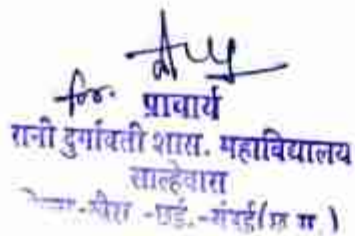 for.
प्राचार्य
रानी दुर्गावती शास. महाविद्यालय
साल्हेवारा
-छुई.-गंडई(